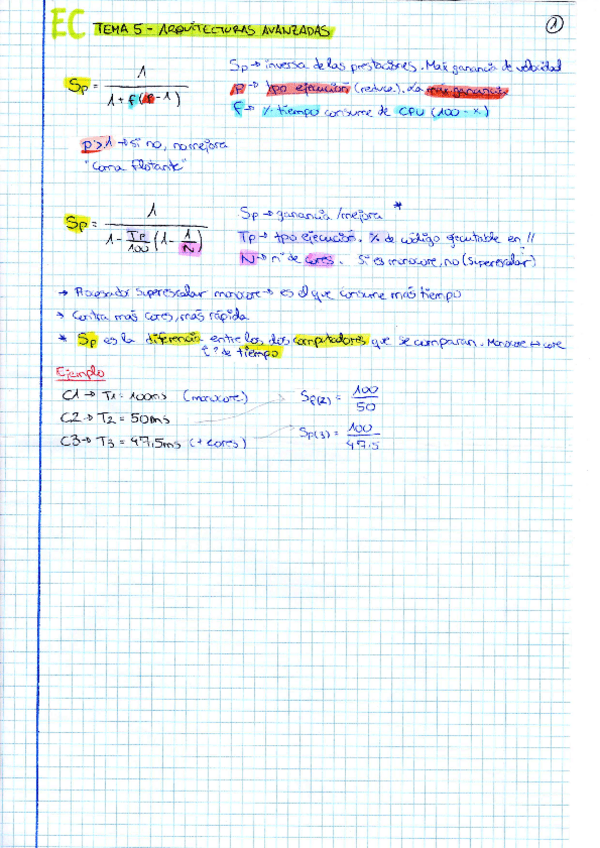 EC TEMA 5 - ARQUITECTURAS AVANZADAS 1
Sp = 1 / (1 + f(p - 1))
Sp → inversa de las prestaciones. Max ganancia de velocidad
p → tpo ejecución (reduce). La max ganancia
f → % tiempo consume de CPU (100 - x)
p > 1 → si no, no mejora
"Coma Flotante"
Sp = 1 / (1 - Tp/100 (1 - 1/N))
Sp → ganancia / mejora *
Tp → tpo ejecución. % de código ejecutable en //
N → nº de cores. Si es monocore, no (superescalar)
→ Procesador superescalar monocore → es el que consume más tiempo
→ Contra más cores, más rápida
* Sp es la diferencia entre los dos computadores que se comparan. Monocore ↔ core
de tiempo
Ejemplo
C1 → T1 = 100ms (monocore)
C2 → T2 = 50ms
C3 → T3 = 47.5ms (+ cores)
Sp(2) = 100 / 50
Sp(3) = 100 / 47.5